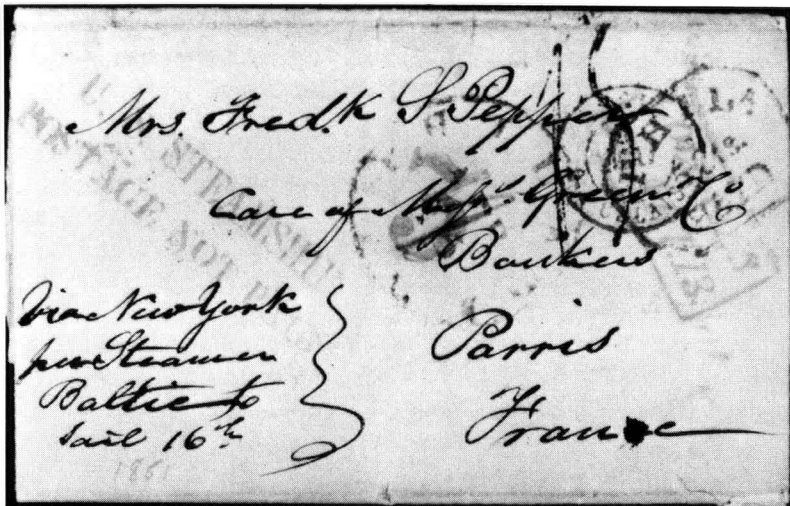 Mrs. Fred.k S Pepper
Care of Messrs Green & Co
Bankers
Parris
France
Via New York
per Steamer
Baltic to
Sail 16th
1851
U.S. STEAMSHIP
POSTAGE NOT